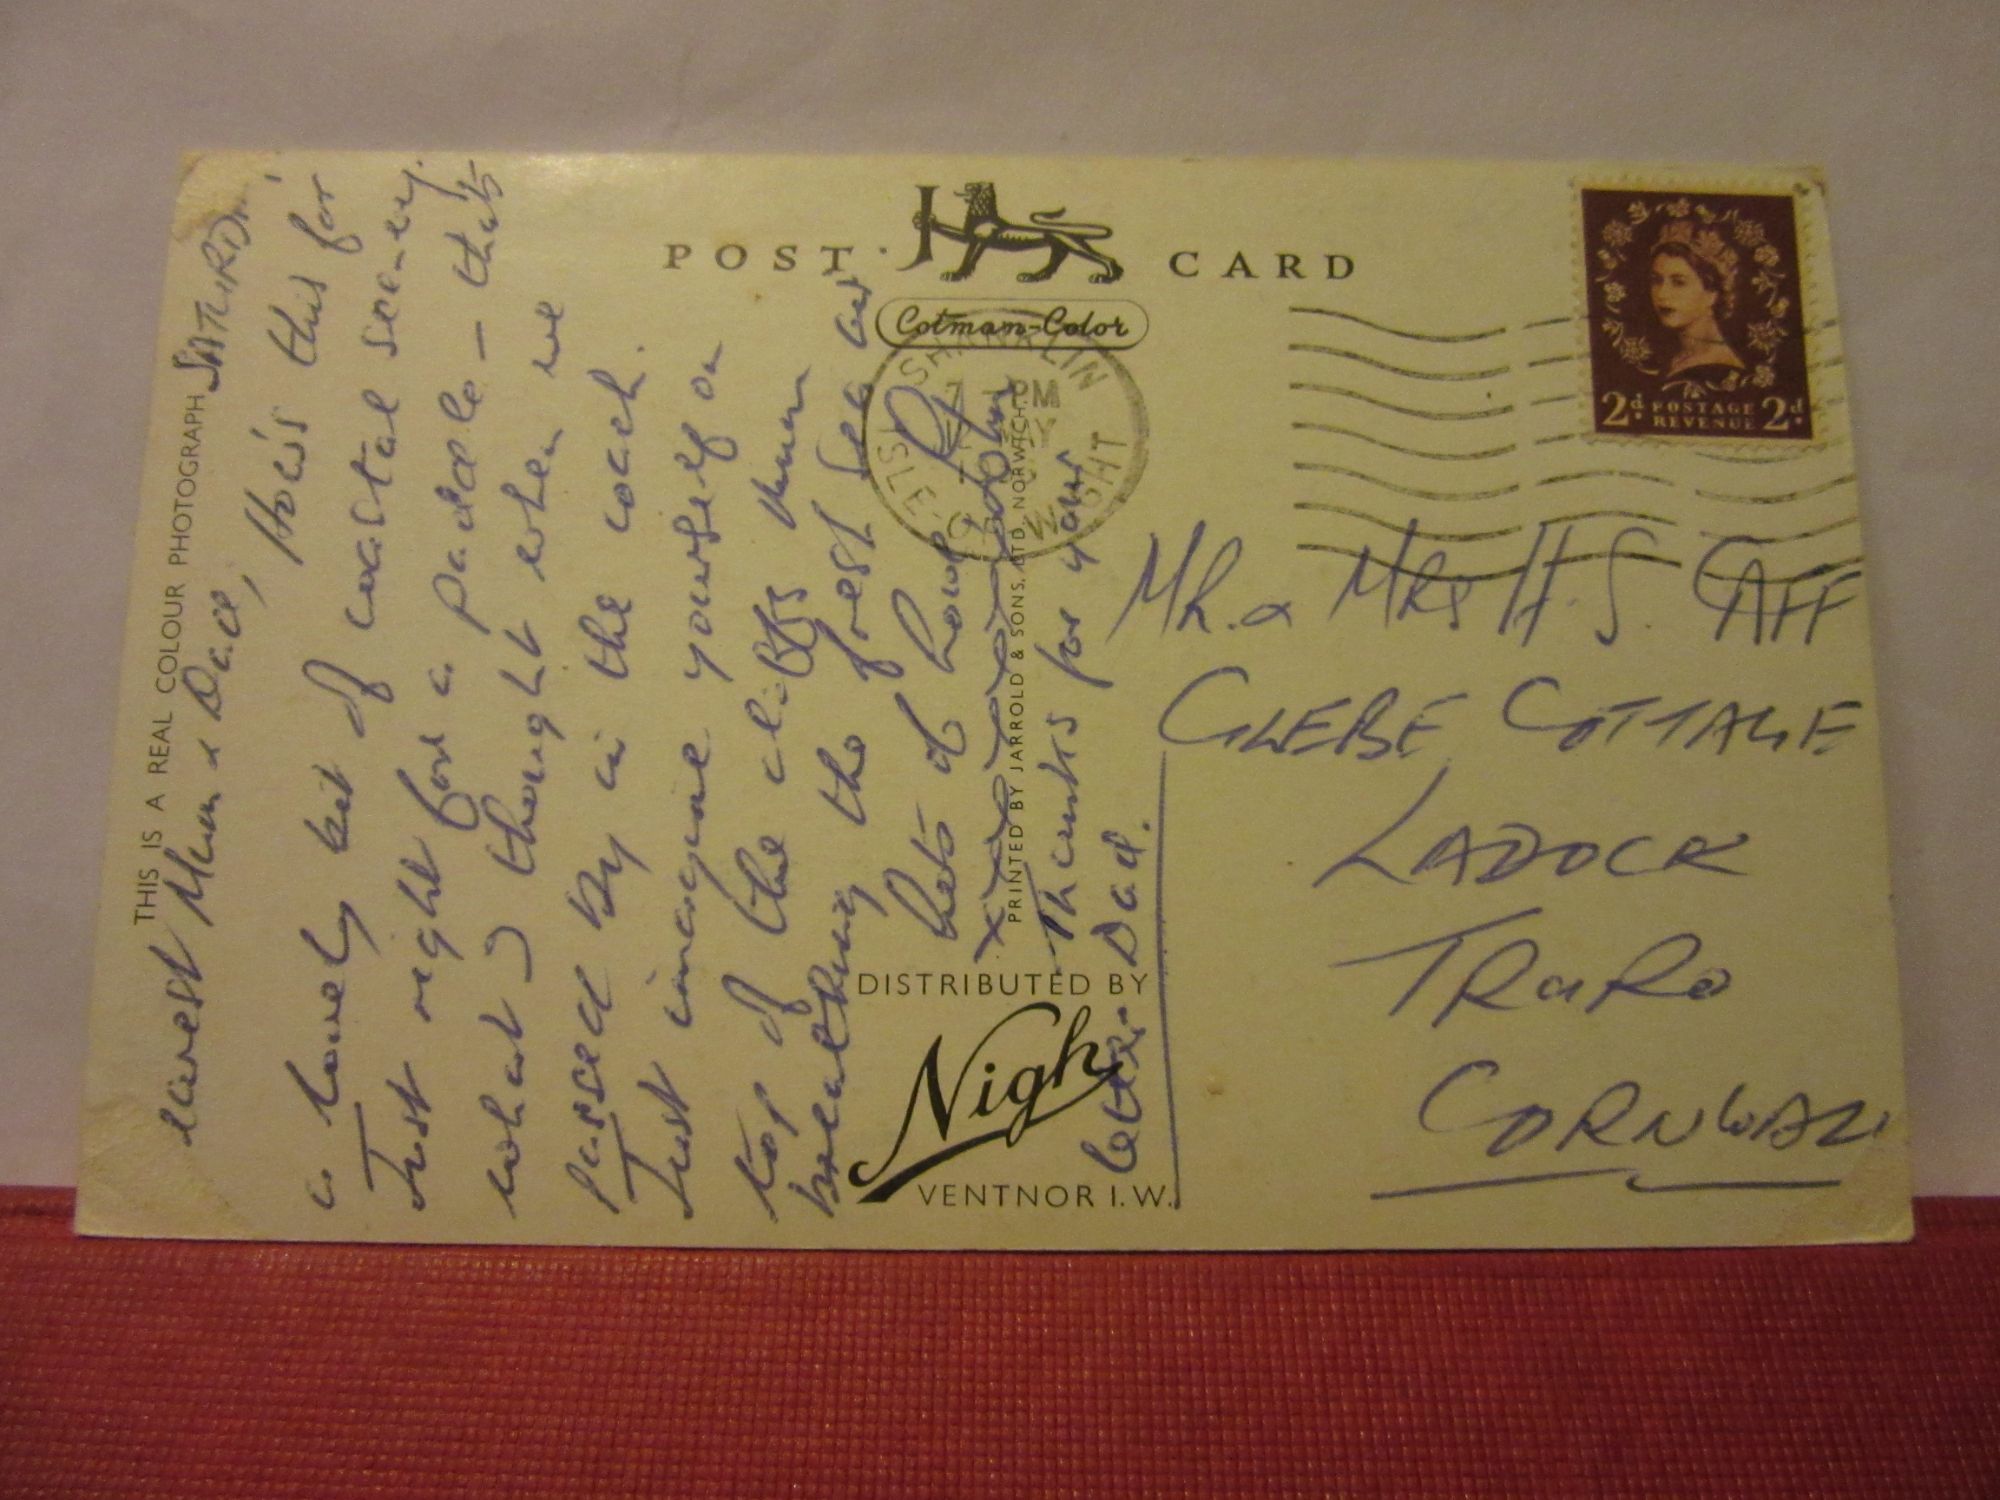 POST CARD
Cotman-Color
SHANKLIN
ISLE OF WIGHT
PM
2d. POSTAGE REVENUE 2d.
THIS IS A REAL COLOUR PHOTOGRAPH
SATURDAY
Dearest Mum & Dad,
How's this for
a lovely bit of coastal scenery.
Just right for a paddle – that's
what I thought when we
passed by in the coach.
Just imagine yourself on
top of the cliffs Mum
breathing the fresh sea air
Lots of love
John
Thanks for your
letter Dad.
PRINTED BY JARROLD & SONS, LTD, NORWICH.
DISTRIBUTED BY
Nigh
VENTNOR I.W.
Mr. & Mrs H. S. CAFF
GLEBE COTTAGE
LADOCK
TRURO
CORNWALL